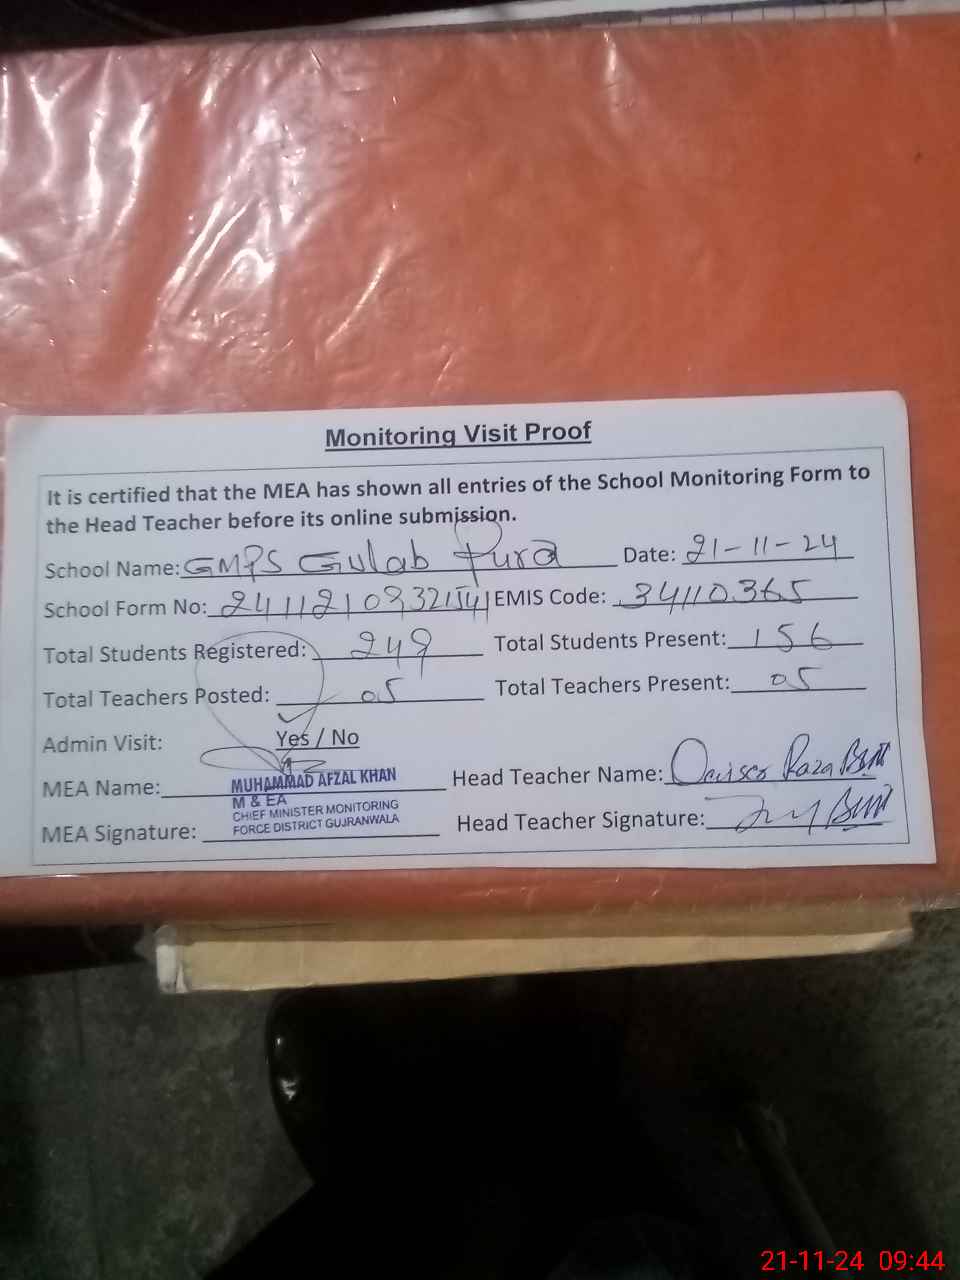 Monitoring Visit Proof
It is certified that the MEA has shown all entries of the School Monitoring Form to
the Head Teacher before its online submission.
School Name: GMPS Gulab Pura Date: 21-11-24
School Form No: EMIS Code: 34110365
Total Students Registered: 249 Total Students Present: 156
Total Teachers Posted: 05 Total Teachers Present: 05
Admin Visit: Yes / No
MEA Name: MUHAMMAD AFZAL KHAN Head Teacher Name: Raza Butt
M & EA
CHIEF MINISTER MONITORING
FORCE DISTRICT GUJRANWALA
MEA Signature: Head Teacher Signature: Butt
21-11-24 09:44